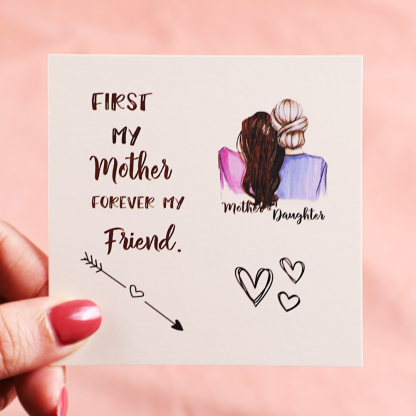 FIRST
MY
Mother
FOREVER MY
Friend.
Mother Daughter